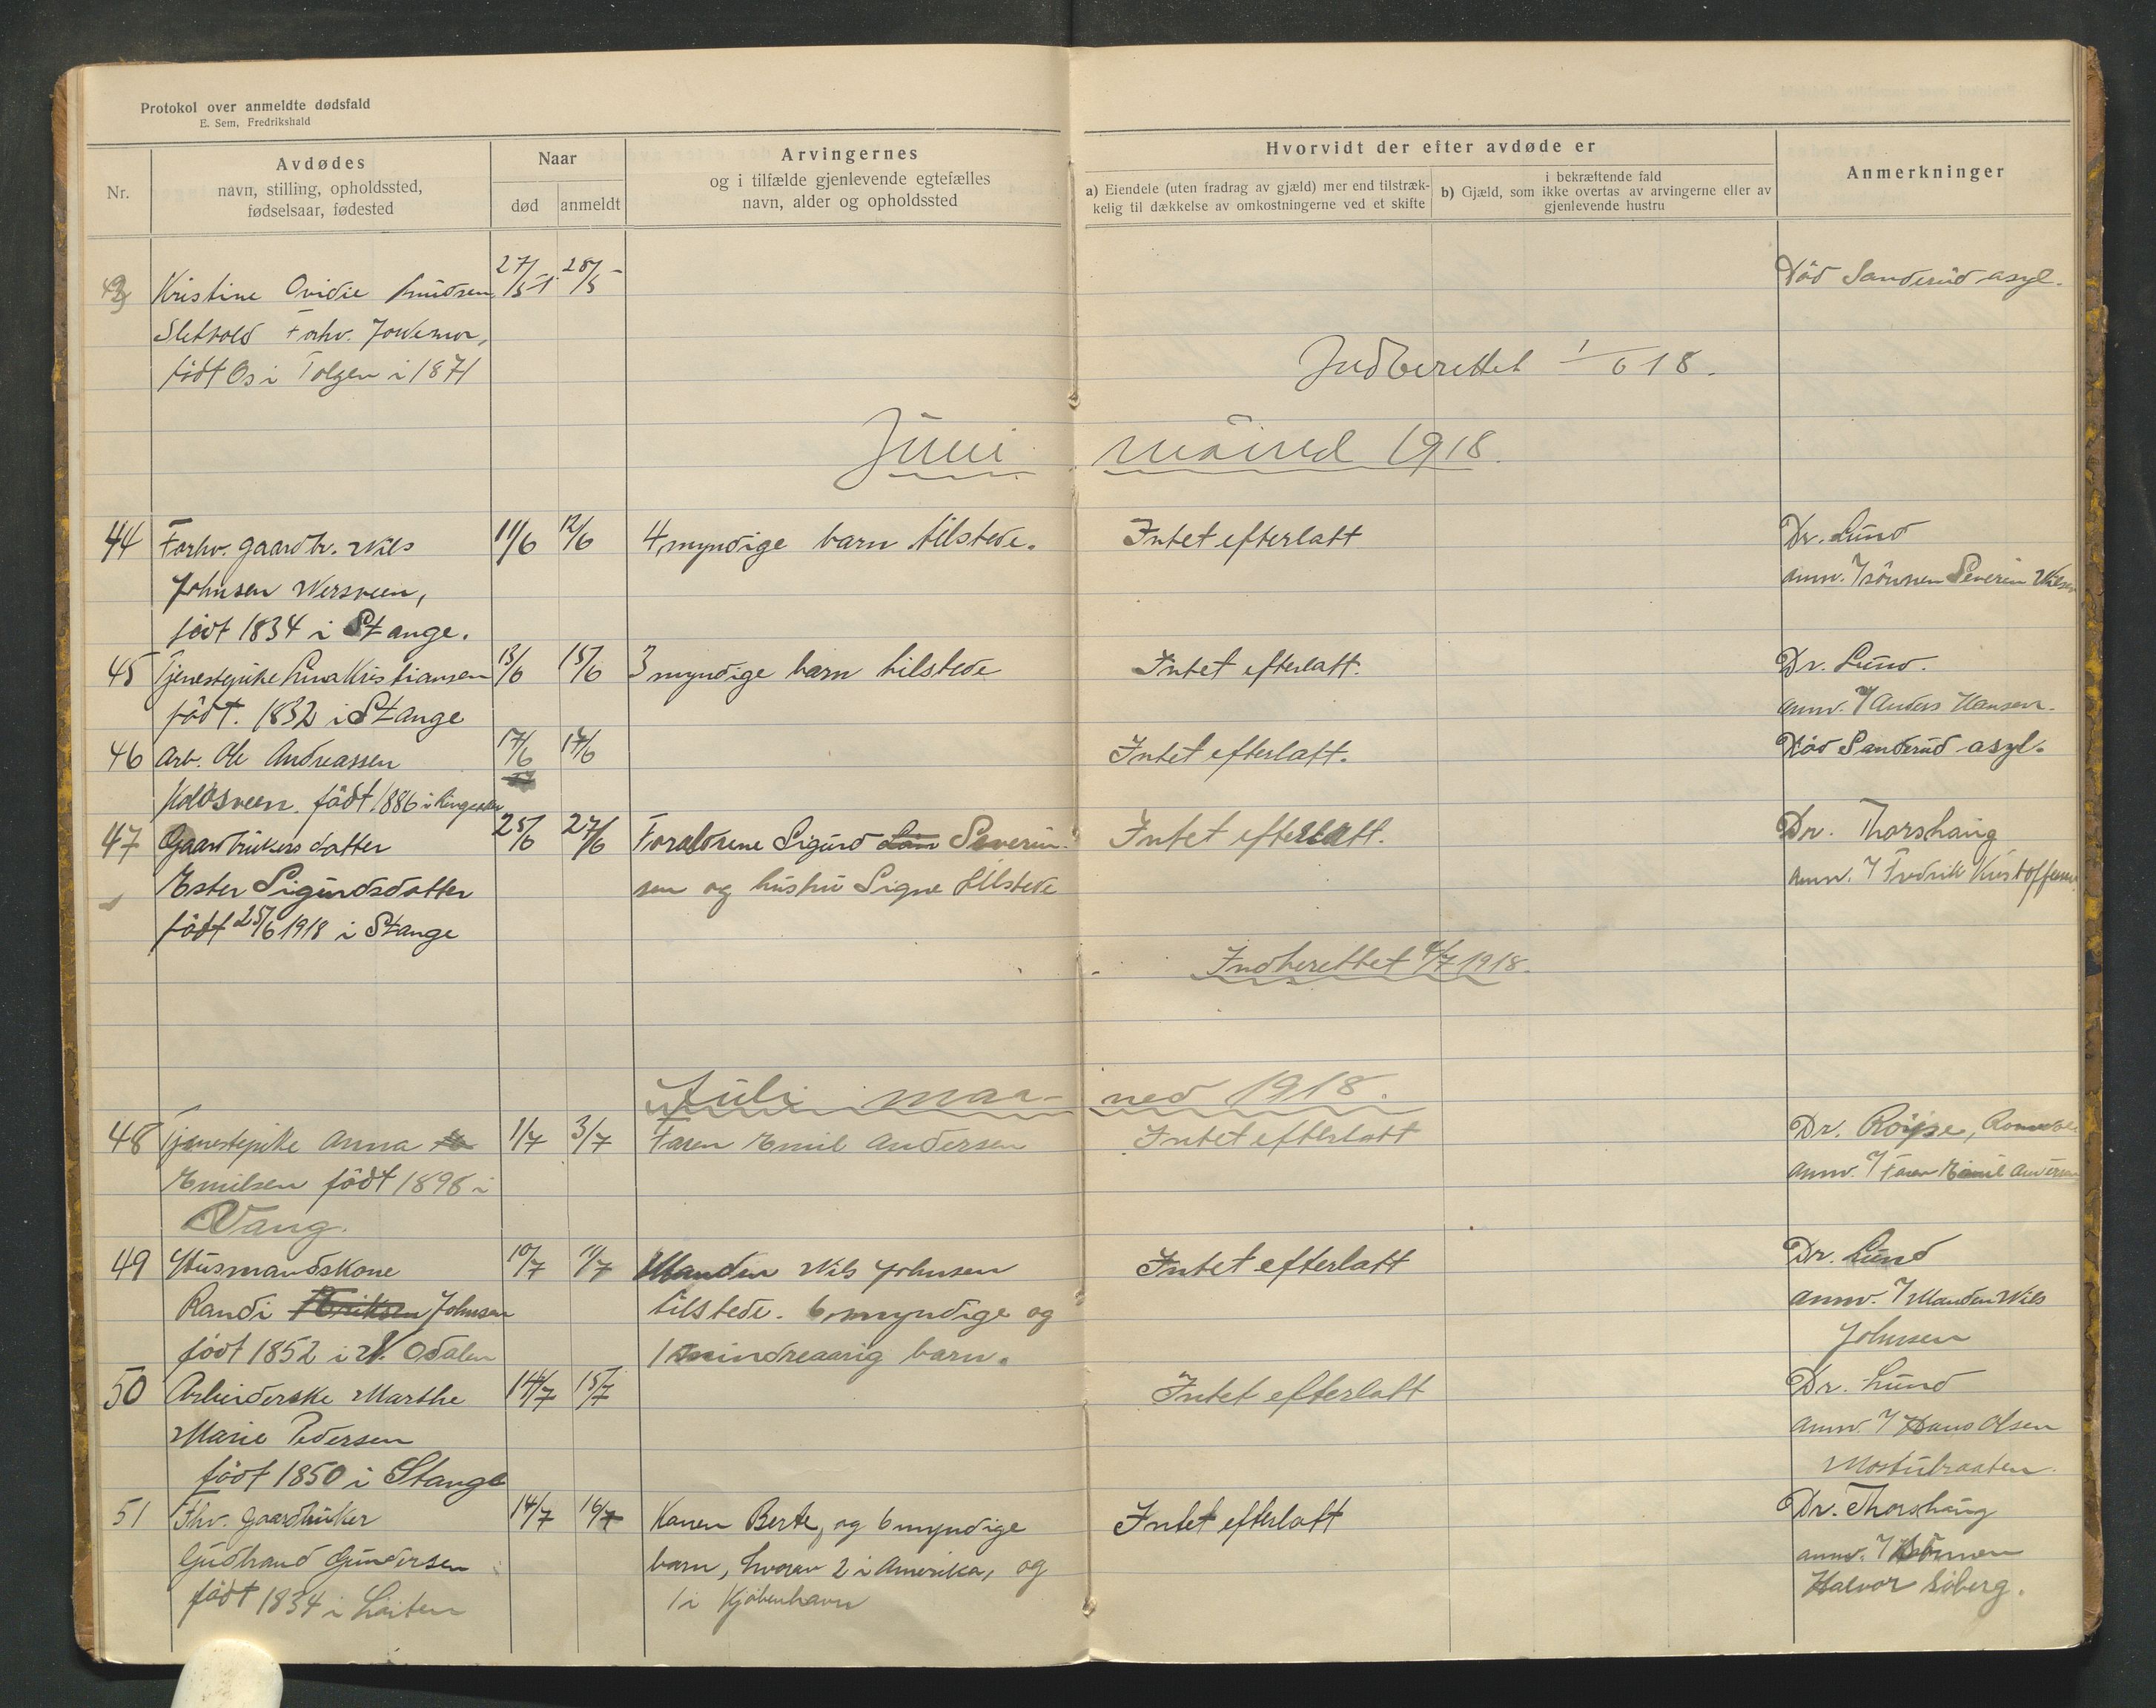 Protokol over anmeldte dødsfald
E. Sem, Fredrikshald
Nr.
Avdødes
navn, stilling, opholdssted,
fødselsaar, fødested
Naar
død
anmeldt
Arvingernes
og i tilfælde gjenlevende egtefælles
navn, alder og opholdssted
Hvorvidt der efter avdøde er
a) Eiendele (uten fradrag av gjæld) mer end tilstræk-
kelig til dækkelse av omkostningerne ved et skifte
i bekræftende fald
b) Gjæld, som ikke overtas av arvingerne eller av
gjenlevende hustru
Anmerkninger
43 Kristine Ovidie Knudsen 27/5 28/5 Död Sanderud asyl.
Sletvold Forhv. Jordemor,
födt Os i Tolgen i 1871
Indberettet 1/6 18.
Juni måned 1918.
44 Forhv. gaardbr. Nils 11/6 12/6 4 myndige barn tilstede. Intet efterlatt Dr. Lund
Johnsen Wersveen, anm. / sönnen Severin Nilsen
födt 1834 i Stange.
45 Tjenestepike Lina Kristiansen 13/6 15/6 3 myndige barn tilstede Intet efterlatt. Dr. Lund.
födt. 1832 i Stange anm. / Anders Hansen.
46 Arb. Ole Andreassen 17/6 17/6 Intet efterlatt. Död Sanderud asyl.
Koldsveen. födt 1886 i Ringsaker
47 Gaardbrukers datter 25/6 27/6 Foraldrene Sigurd Severin- Intet efterlatt. Dr. Thorshaug
Ester Sigurdsdatter sen og hustru Signe tilstede anm. / Fredrik Kristoffersen
födt 25/6 1918 i Stange
Indberettet 4/7 1918.
Juli maaned 1918.
48 Tjenestepike Anna 1/7 3/7 Faren Emil Andersen Intet efterlatt Dr. Röyse, Romedal
Emilsen födt 1898 i anm. / Faren Emil Andersen
Vang.
49 Husmandskone 10/7 11/7 Manden Nils Johnsen Intet efterlatt Dr. Lund
Randi Eriksen Johnsen tilstede. 6 myndige og anm. / Manden Nils
födt 1852 i N. Odalen 1 mindreaarig barn. Johnsen
50 Arbeiderske Marthe 14/7 15/7 Intet efterlatt Dr. Lund
Marie Pedersen anm. / Hans Olsen
födt 1850 i Stange Mostubraaten.
51 Fhv. Gaardbruker 14/7 16/7 Konen Berte, og 6 myndige Intet efterlatt Dr. Thorshaug
Gudbrand Gundersen barn, hvorav 2 i Amerika, og anm. / Sönnen
födt 1834 i Löiten 1 i Kjöbenhavn Halvor Söberg.